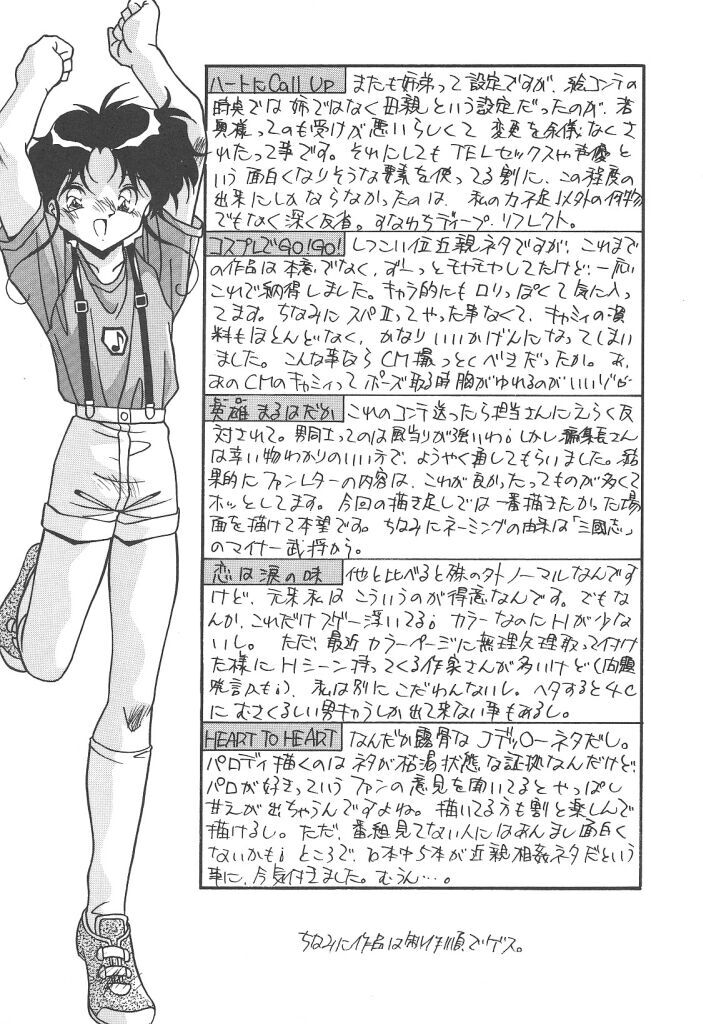 ハートにCall Up またも姉弟って設定ですが、絵コンテの
時点では姉ではなく母親という設定だったのが、若
奥様ってのも受けが悪いらしくて 変更を余儀なくさ
れたって事です。それにしてもTELセックスや声優と
いう面白くなりそうな要素を使ってる割に、この程度の
出来にしかならなかったのは、私の力不足以外の何物
でもなく深く反省。すなわちディープ リフレクト。
コスプレでGO!GO! しつこい位近親ネタですが、これまで
の作品は本意でなく、ずーっとモヤモヤしてたけど、一応
これで納得しました。キャラ的にもロリっぽくて気に入っ
てます。ちなみにスパⅡってやった事なくて、キャミィの資
料もほとんどなく、かなりいいかげんになってしまい
ました。こんな事ならCM撮っとくべきだったか。あ、
あのCMのキャミィってポーズ取る時胸がゆれるのがいいゾー
英雄まるはだか これのコンテ送ったら担当さんにえらく反
対されて。男同士ってのは風当りが強いわ¡しかし編集長さん
は幸い物わかりのいい方で、ようやく通してもらいました。結
果的にファンレターの内容は、これが良かったってものが多くて
ホッとしてます。今回の描き足しでは一番描きたかった場
面を描けて本望です。ちなみにネーミングの由来は「三國志」
のマイナー武将から。
恋は涙の味 他と比べると殊の外ノーマルなんです
けど、元来私はこういうのが得意なんです。でもな
んか、これだけスゲー浮いてる¡カラーなのにHが少な
いし。ただ、最近カラーページに無理矢理取って付け
た様にHシーン持ってくる作家さんが多いけど(問題
発言かも¡)、私は別にこだわんないし。ヘタすると4C
にむさくるしい男キャラしか出て来ない事もあるし。
HEART TO HEART なんだか露骨なJデッローネタだし。
パロディ描くのはネタが枯渇状態な証拠なんだけど、
パロが好きっていうファンの意見を聞いてるとやっぱし
甘えが出ちゃうんですよね。描いてる方も割と楽しんで
描けるし。ただ、番組見てない人にはあんまし面白く
ないかも¡ところで、10本中5本が近親相姦ネタだという
事に、今気付きました。むうん…。
ちなみに作品は制作順でゲス。